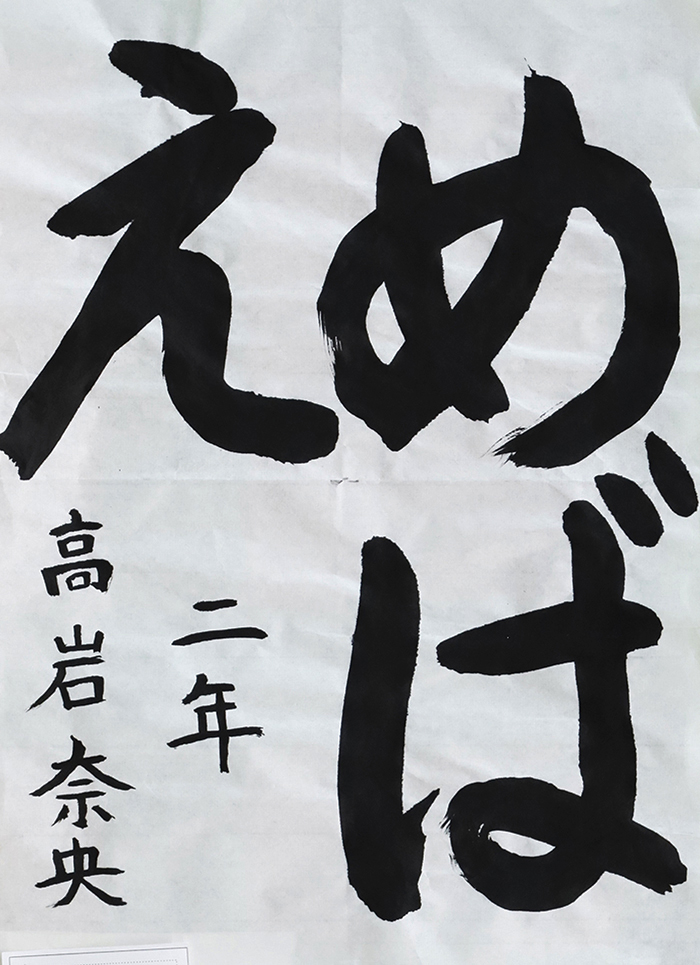 めば
え
二年
高岩奈央